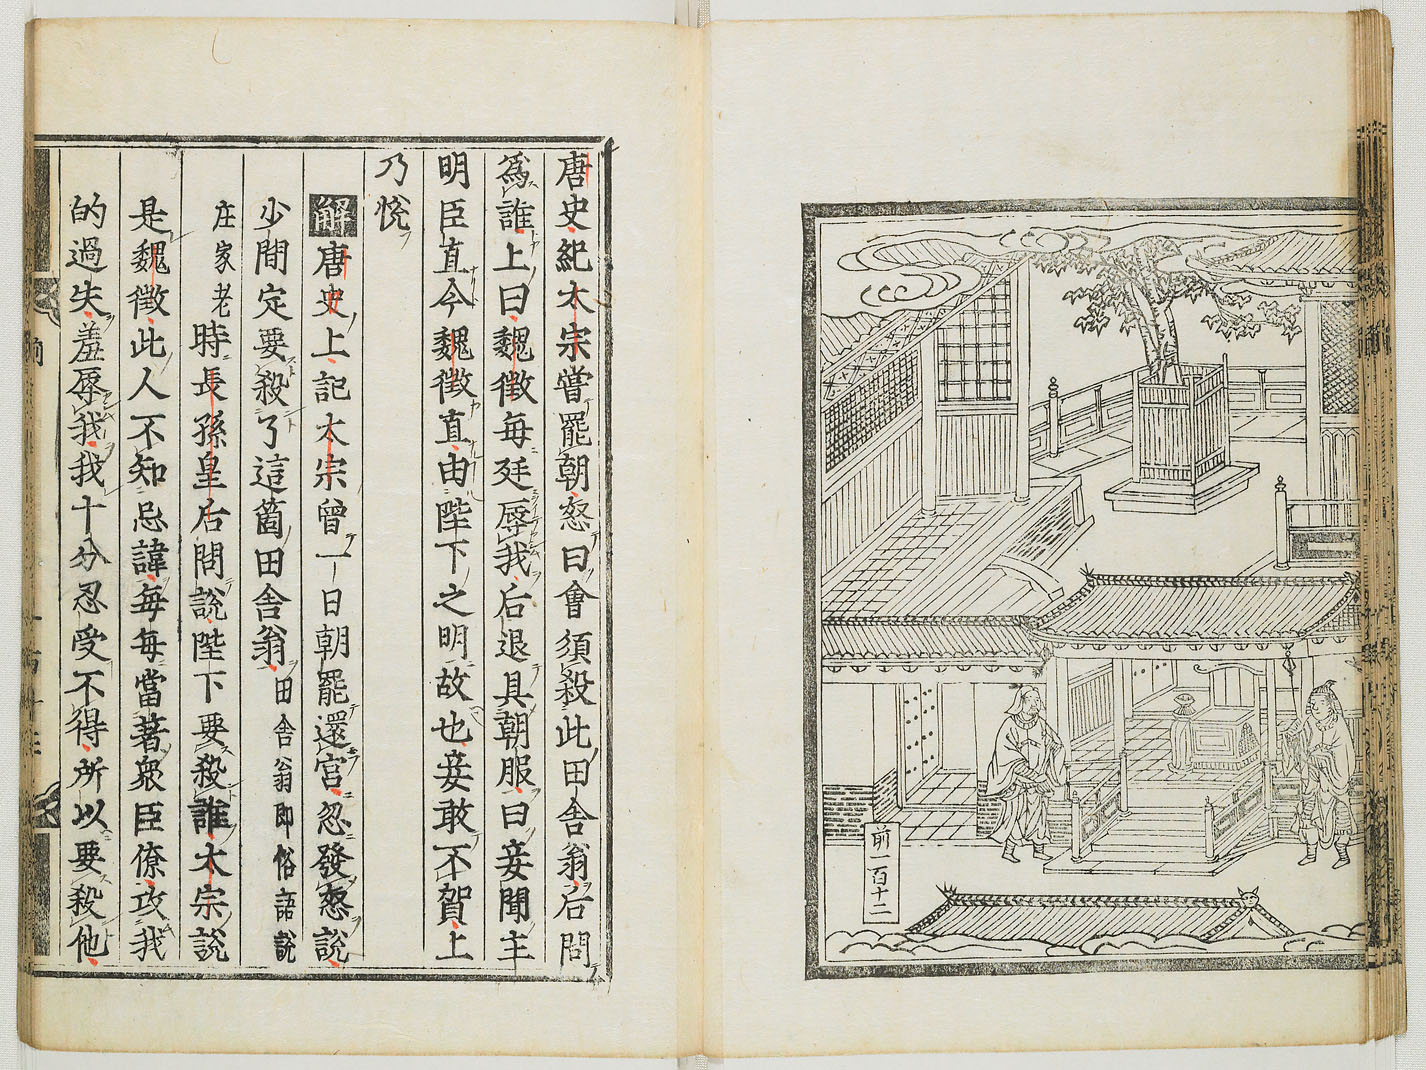 前一百十二
唐史紀太宗嘗罷朝怒曰會須殺此田舍翁后問
爲誰上曰魏徵每廷辱我后退具朝服曰妾聞主
明臣直今魏徵直由陛下之明故也妾敢不賀上
乃悅
解唐史上記太宗曾一日朝罷還宮忽發怒說
少間定要殺了這箇田舍翁田舍翁即俗語說
庄家老時長孫皇后問說陛下要殺誰太宗說
是魏徵此人不知忌諱每每當著衆臣僚攻我
的過失羞辱我我十分忍受不得所以要殺他